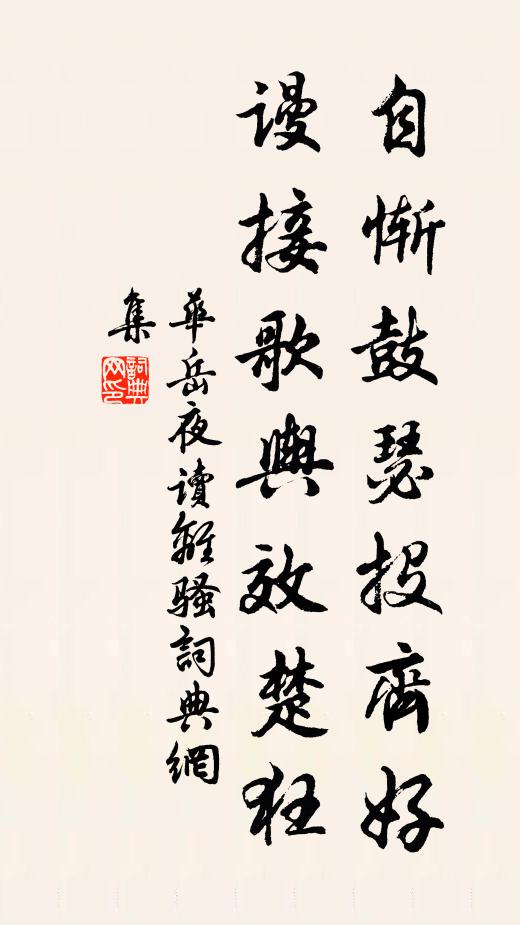 自慚鼓瑟投齊好
謾接歌輿效楚狂
華岳夜讀離騷詞典網
集
詞典网印